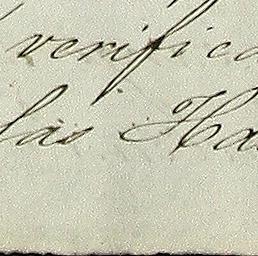 verifica
las Ha